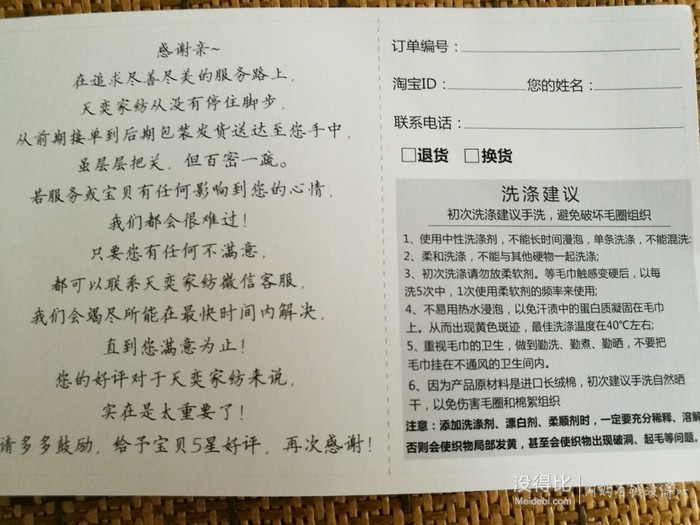 感谢亲~
在追求尽善尽美的服务路上，
天奕家纺从没有停住脚步，
从前期接单到后期包装发货送达至您手中，
虽层层把关，但百密一疏。
若服务或宝贝有任何影响到您的心情，
我们都会很难过！
只要您有任何不满意，
都可以联系天奕家纺微信客服，
我们会竭尽所能在最快时间内解决，
直到您满意为止！
您的好评对于天奕家纺来说，
实在是太重要了！
请多多鼓励，给予宝贝5星好评，再次感谢！
订单编号：
淘宝ID： 您的姓名：
联系电话：
□退货 □换货
洗涤建议
初次洗涤建议手洗，避免破坏毛圈组织
1、使用中性洗涤剂，不能长时间漫泡，单条洗涤，不能混洗;
2、柔和洗涤，不能与其他硬物一起洗涤;
3、初次洗涤请勿放柔软剂。等毛巾触感变硬后，以每
洗5次中，1次使用柔软剂的频率来使用;
4、不易用热水浸泡，以免汗渍中的蛋白质凝固在毛巾
上。从而出现黄色斑迹，最佳洗涤温度在40℃左右;
5、重视毛巾的卫生，做到勤洗、勤煮、勤晒，不要把
毛巾挂在不通风的卫生间内。
6、因为产品原材料是进口长绒棉，初次建议手洗自然晒
干，以免伤害毛圈和棉絮组织
注意：添加洗涤剂、漂白剂、柔顺剂时，一定要充分稀释、溶解
否则会使织物局部发黄，甚至会使织物出现破洞、起毛等问题。
没得比
Meidebi.com